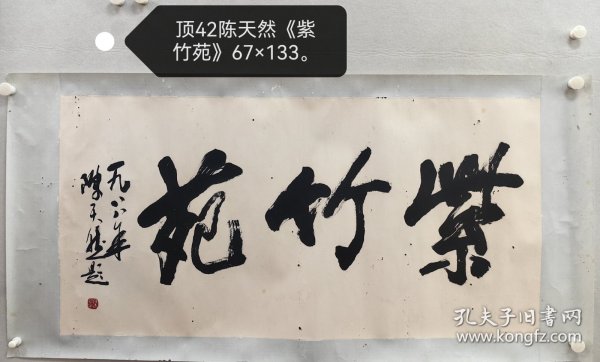 顶42陈天然《紫
竹苑》67×133。
紫竹苑
一九八八年
陳天然題
孔夫子旧书网
www.kongfz.com